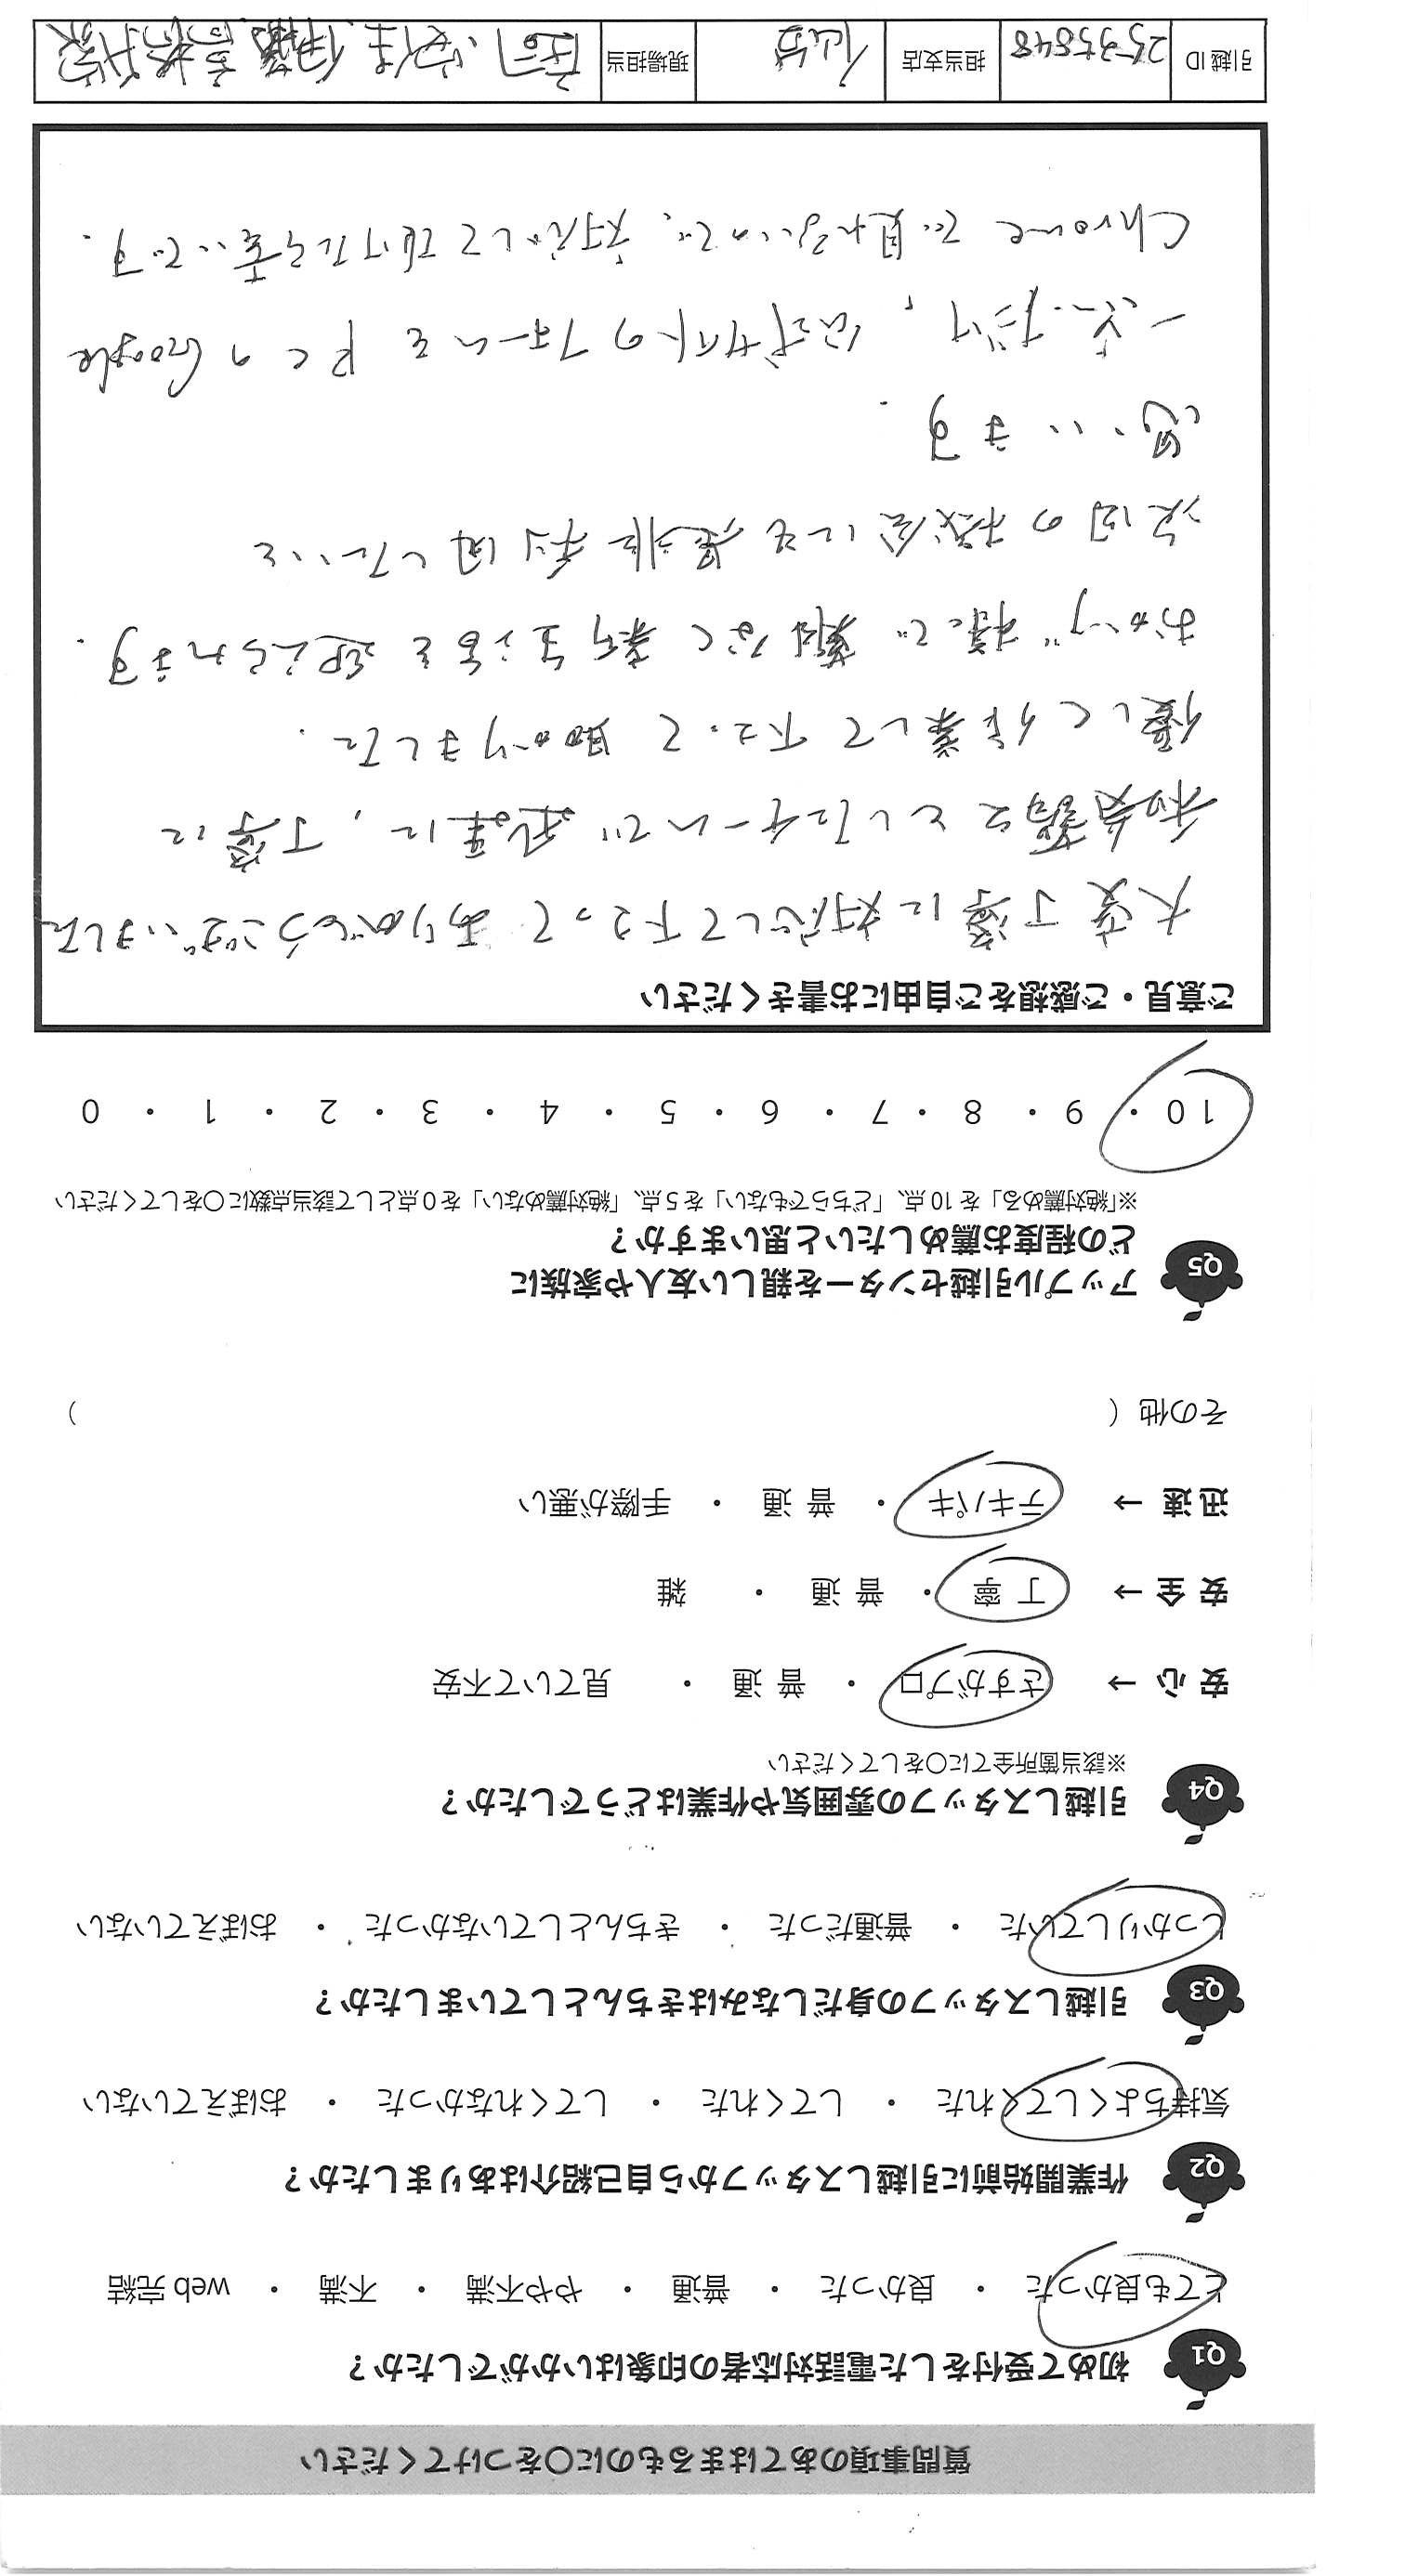 質問事項のあてはまるものに〇をつけてください
Q1 初めて受付をした電話対応者の印象はいかがでしたか？
とても良かった ・ 良かった ・ 普通 ・ やや不満 ・ 不満 ・ web 完結
Q2 作業開始前に引越しスタッフから自己紹介はありましたか？
気持ちよくしてくれた ・ してくれた ・ してくれなかった ・ おぼえていない
Q3 引越しスタッフの身だしなみはきちんとしていましたか？
しっかりしていた ・ 普通だった ・ きちんとしていなかった ・ おぼえていない
Q4 引越しスタッフの雰囲気や作業はどうでしたか？
※該当箇所全てに〇をしてください
安心 → さすがプロ ・ 普通 ・ 見ていて不安
安全 → 丁寧 ・ 普通 ・ 雑
迅速 → テキパキ ・ 普通 ・ 手際が悪い
その他（ ）
Q5 アップル引越センターを親しい友人や家族に
どの程度お薦めしたいと思いますか？
※「絶対薦める」を 10 点、「どちらでもない」を 5 点、「絶対薦めない」を 0 点として該当点数に〇をしてください
10 ・ 9 ・ 8 ・ 7 ・ 6 ・ 5 ・ 4 ・ 3 ・ 2 ・ 1 ・ 0
ご意見・ご感想をご自由にお書きください
大変丁寧に対応して下さって ありがとうございました
和気藹々としたチームで 迅速に、丁寧に
優しく作業して下さって 助かりました.
おかげ様で 難なく新生活を迎えられます.
次回の機会にも是非利用したいと
思います.
一点だけ, 公式サイトのフォームを PCのGoogle
Chromeで見れないので、対応して頂けたら幸いです.
引越 ID 2535848 担当支店 仙台 現場担当 庄司、安住、伊藤、高橋